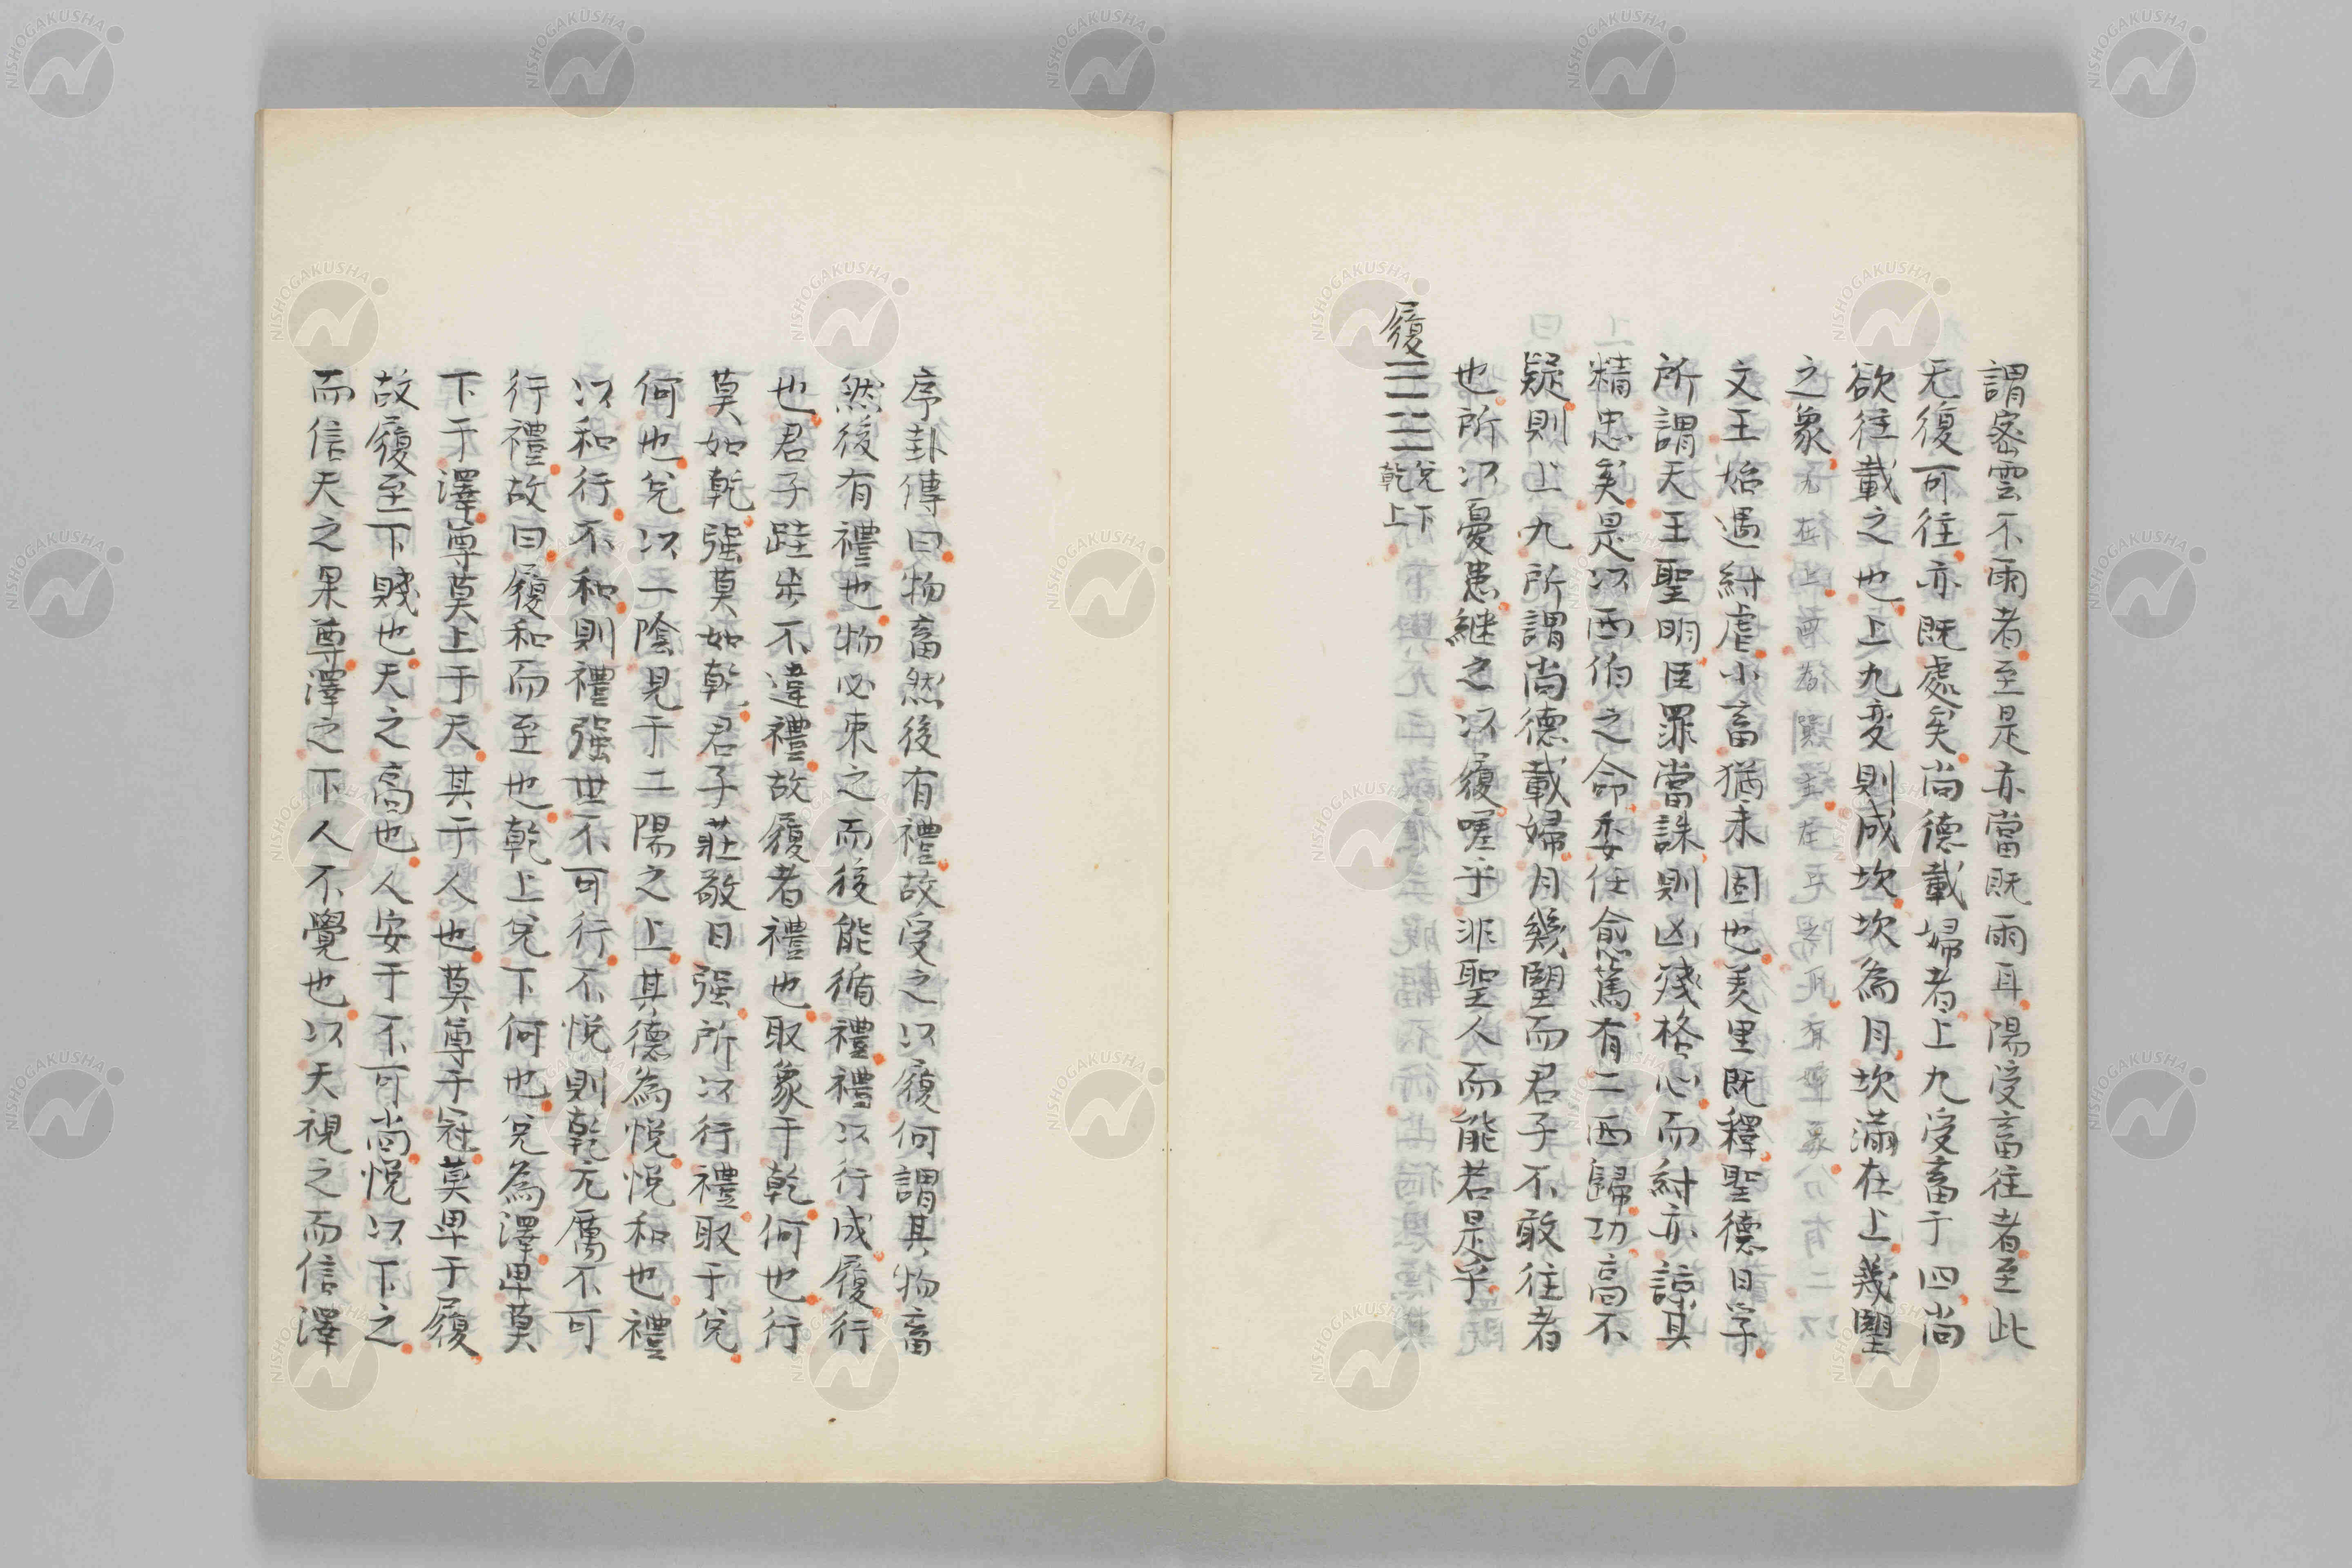 謂密雲不雨者至是亦當既雨耳陽受畜往者至此
无復可往亦既處矣尚德載婦者上九受畜于四尚
欲往載之也上九変則成坎坎為月坎滿在上幾朢
之象
文王始遇紂虐小畜猶未固也羑里既釋聖德日孚
所謂天王聖明臣罪當誅則凶殘格心而紂亦諒其
精忠矣是以西伯之命委任愈篤有二西歸功高不
疑則上九所謂尚德載婦月幾朢而君子不敢往者
也所以憂患繼之以履嗟乎非聖人而能若是乎
履 兌下乾上
序卦傳曰物畜然後有禮故受之以履何謂其物畜
然後有禮也物必束之而後能循禮禮以行成履行
也君子跬步不違禮故履者禮也取象于乾何也行
莫如乾强莫如乾君子莊敬日强所以行禮取于兌
何也兌以一陰見于二陽之上其德為悅悅和也禮
以和行不和則禮强世不可行不悅則乾亢厲不可
行禮故曰履和而至也乾上兌下何也兌為澤卑莫
下于澤尊莫上于天其于人也莫尊于冠莫卑于履
故履至下賤也天之高也人安于不可尚悅以下之
而信天之果尊澤之下人不覺也以天視之而信澤
NISHOGAKUSHA